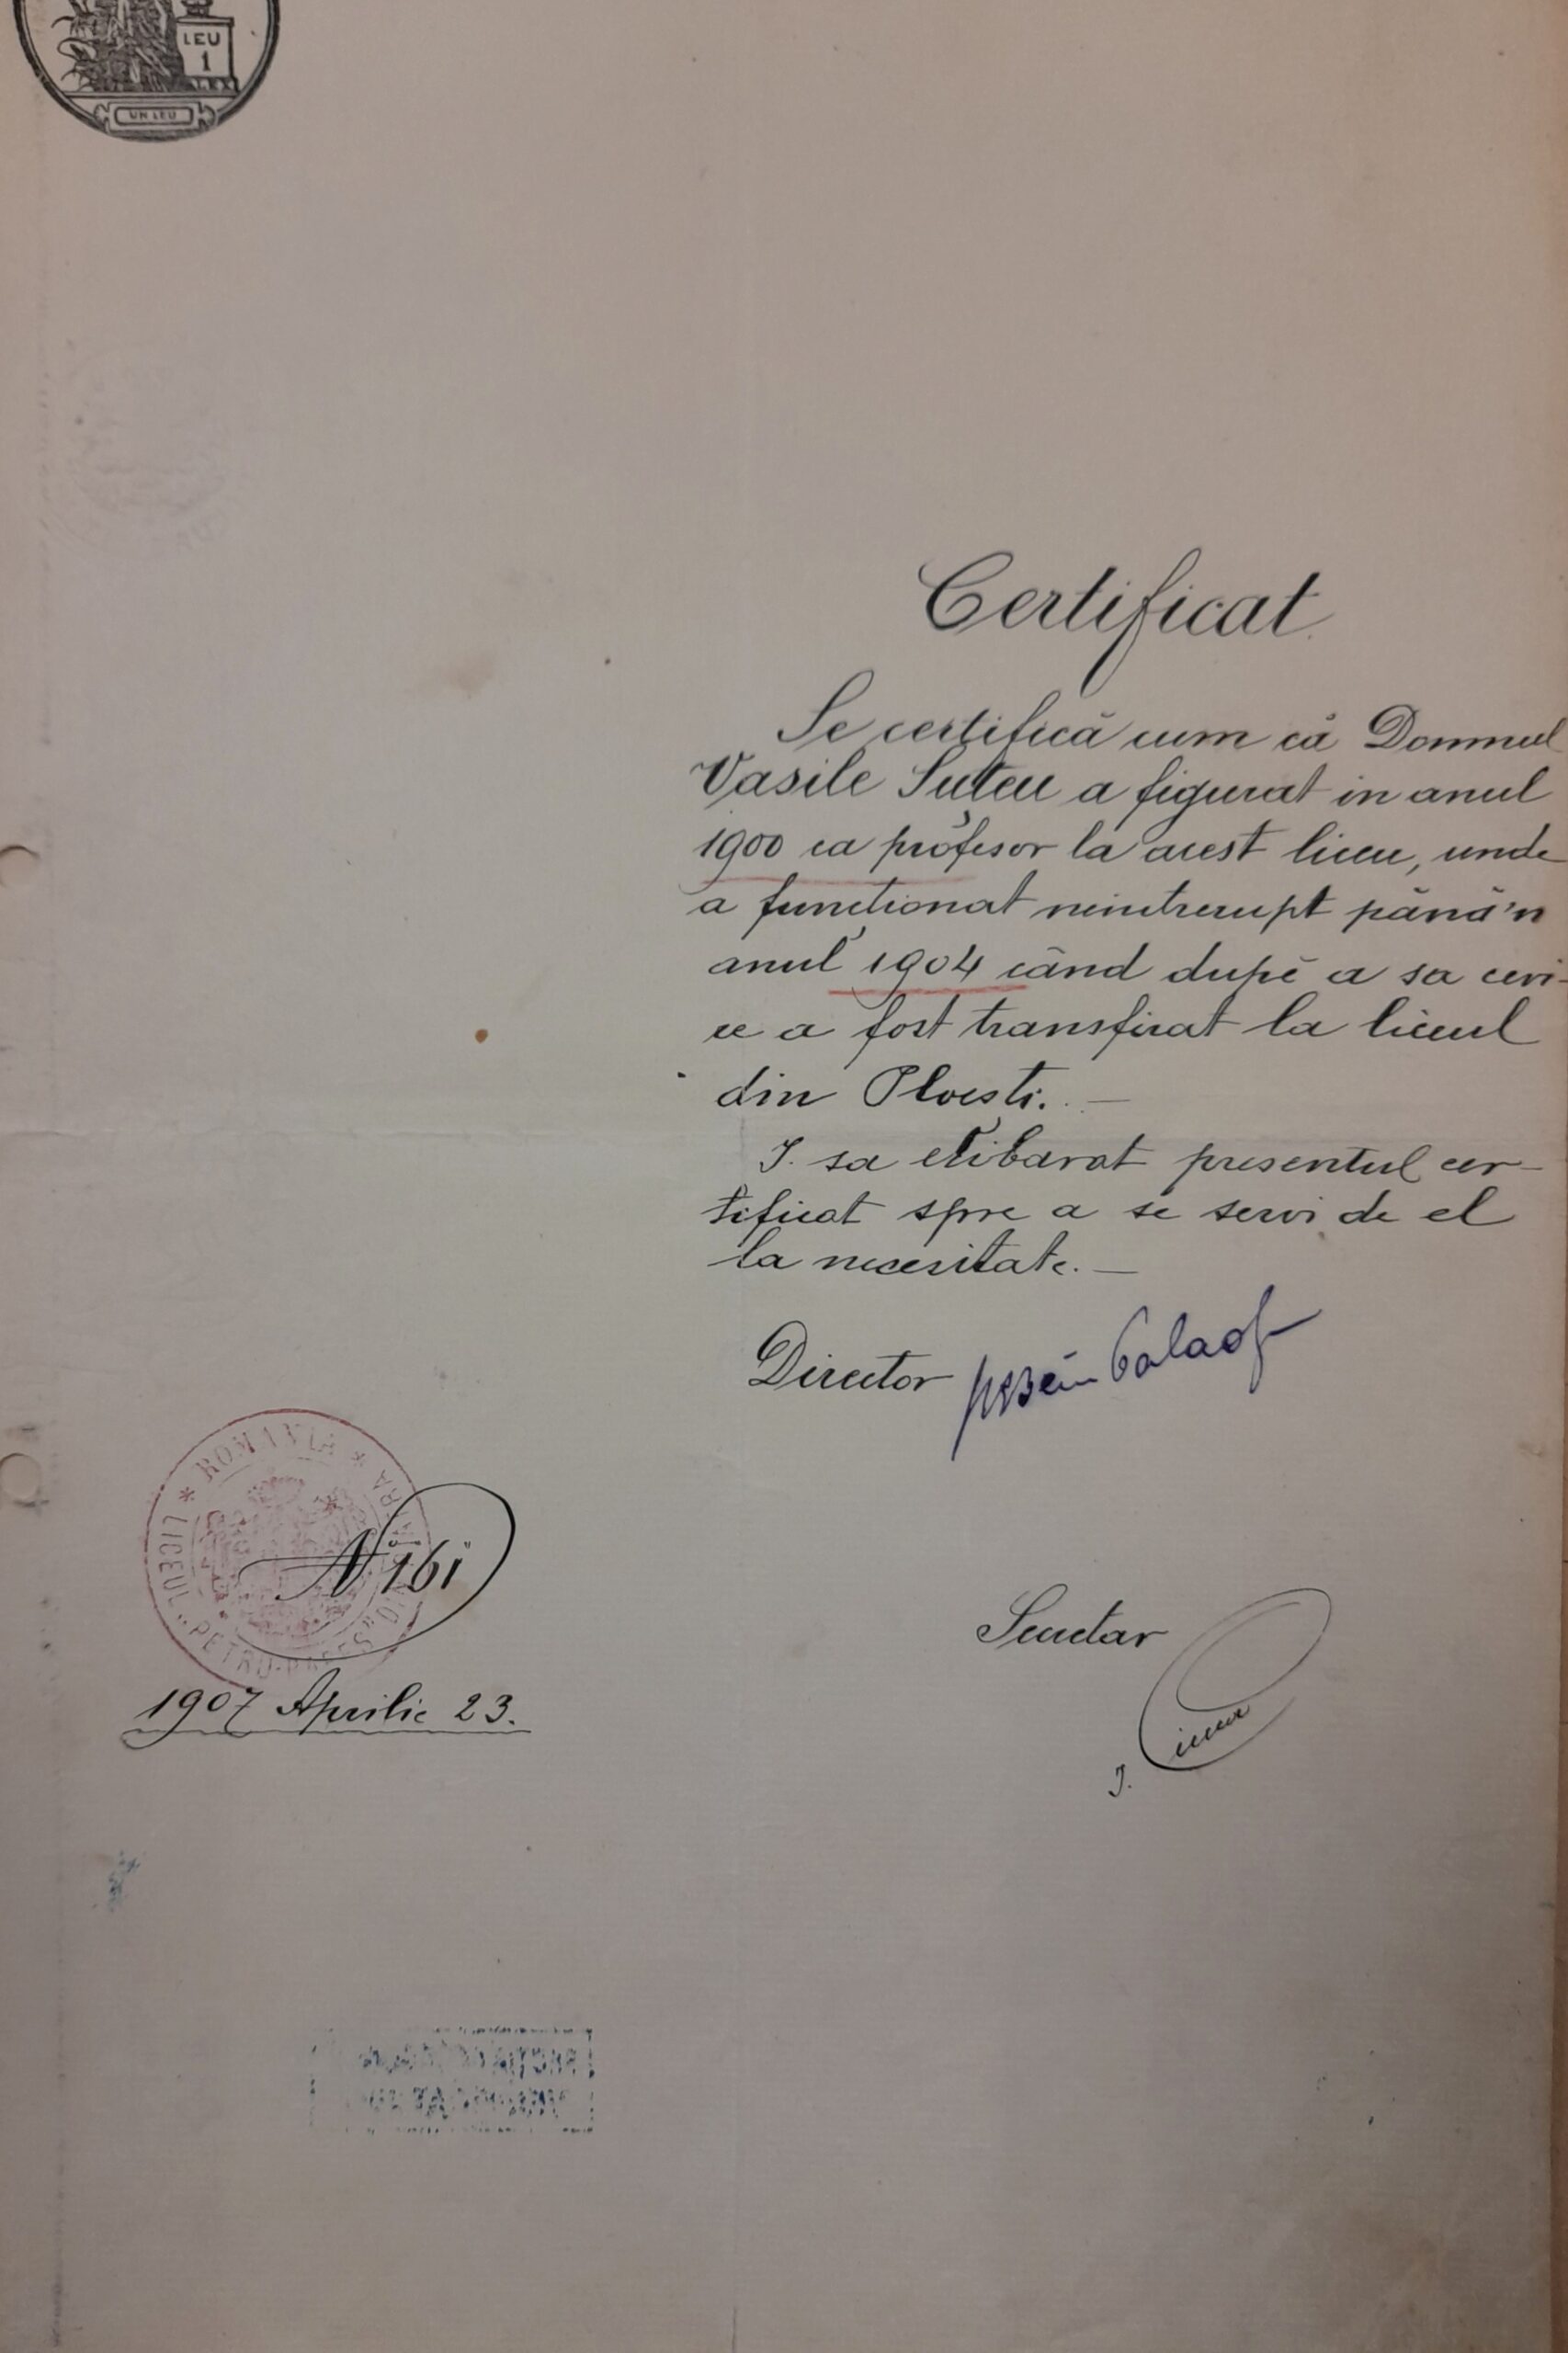 LEU
1
UN LEU
Certificat
Se certifică cum că Domnul
Vasile Șuțeu a figurat in anul
1900 ca profesor la acest liceu, unde
a funcționat neintrerupt până'n
anul 1904 când după a sa ceri-
re a fost transferat la liceul
din Ploești. —
I. sa eliberat presentul cer-
tificat spre a se servi de el
la necesitate. —
Director
* ROMANIA *
LICEUL "PETRU-RAREȘ" DIN
N 161
1907 Aprilie 23.
Secretar
I.